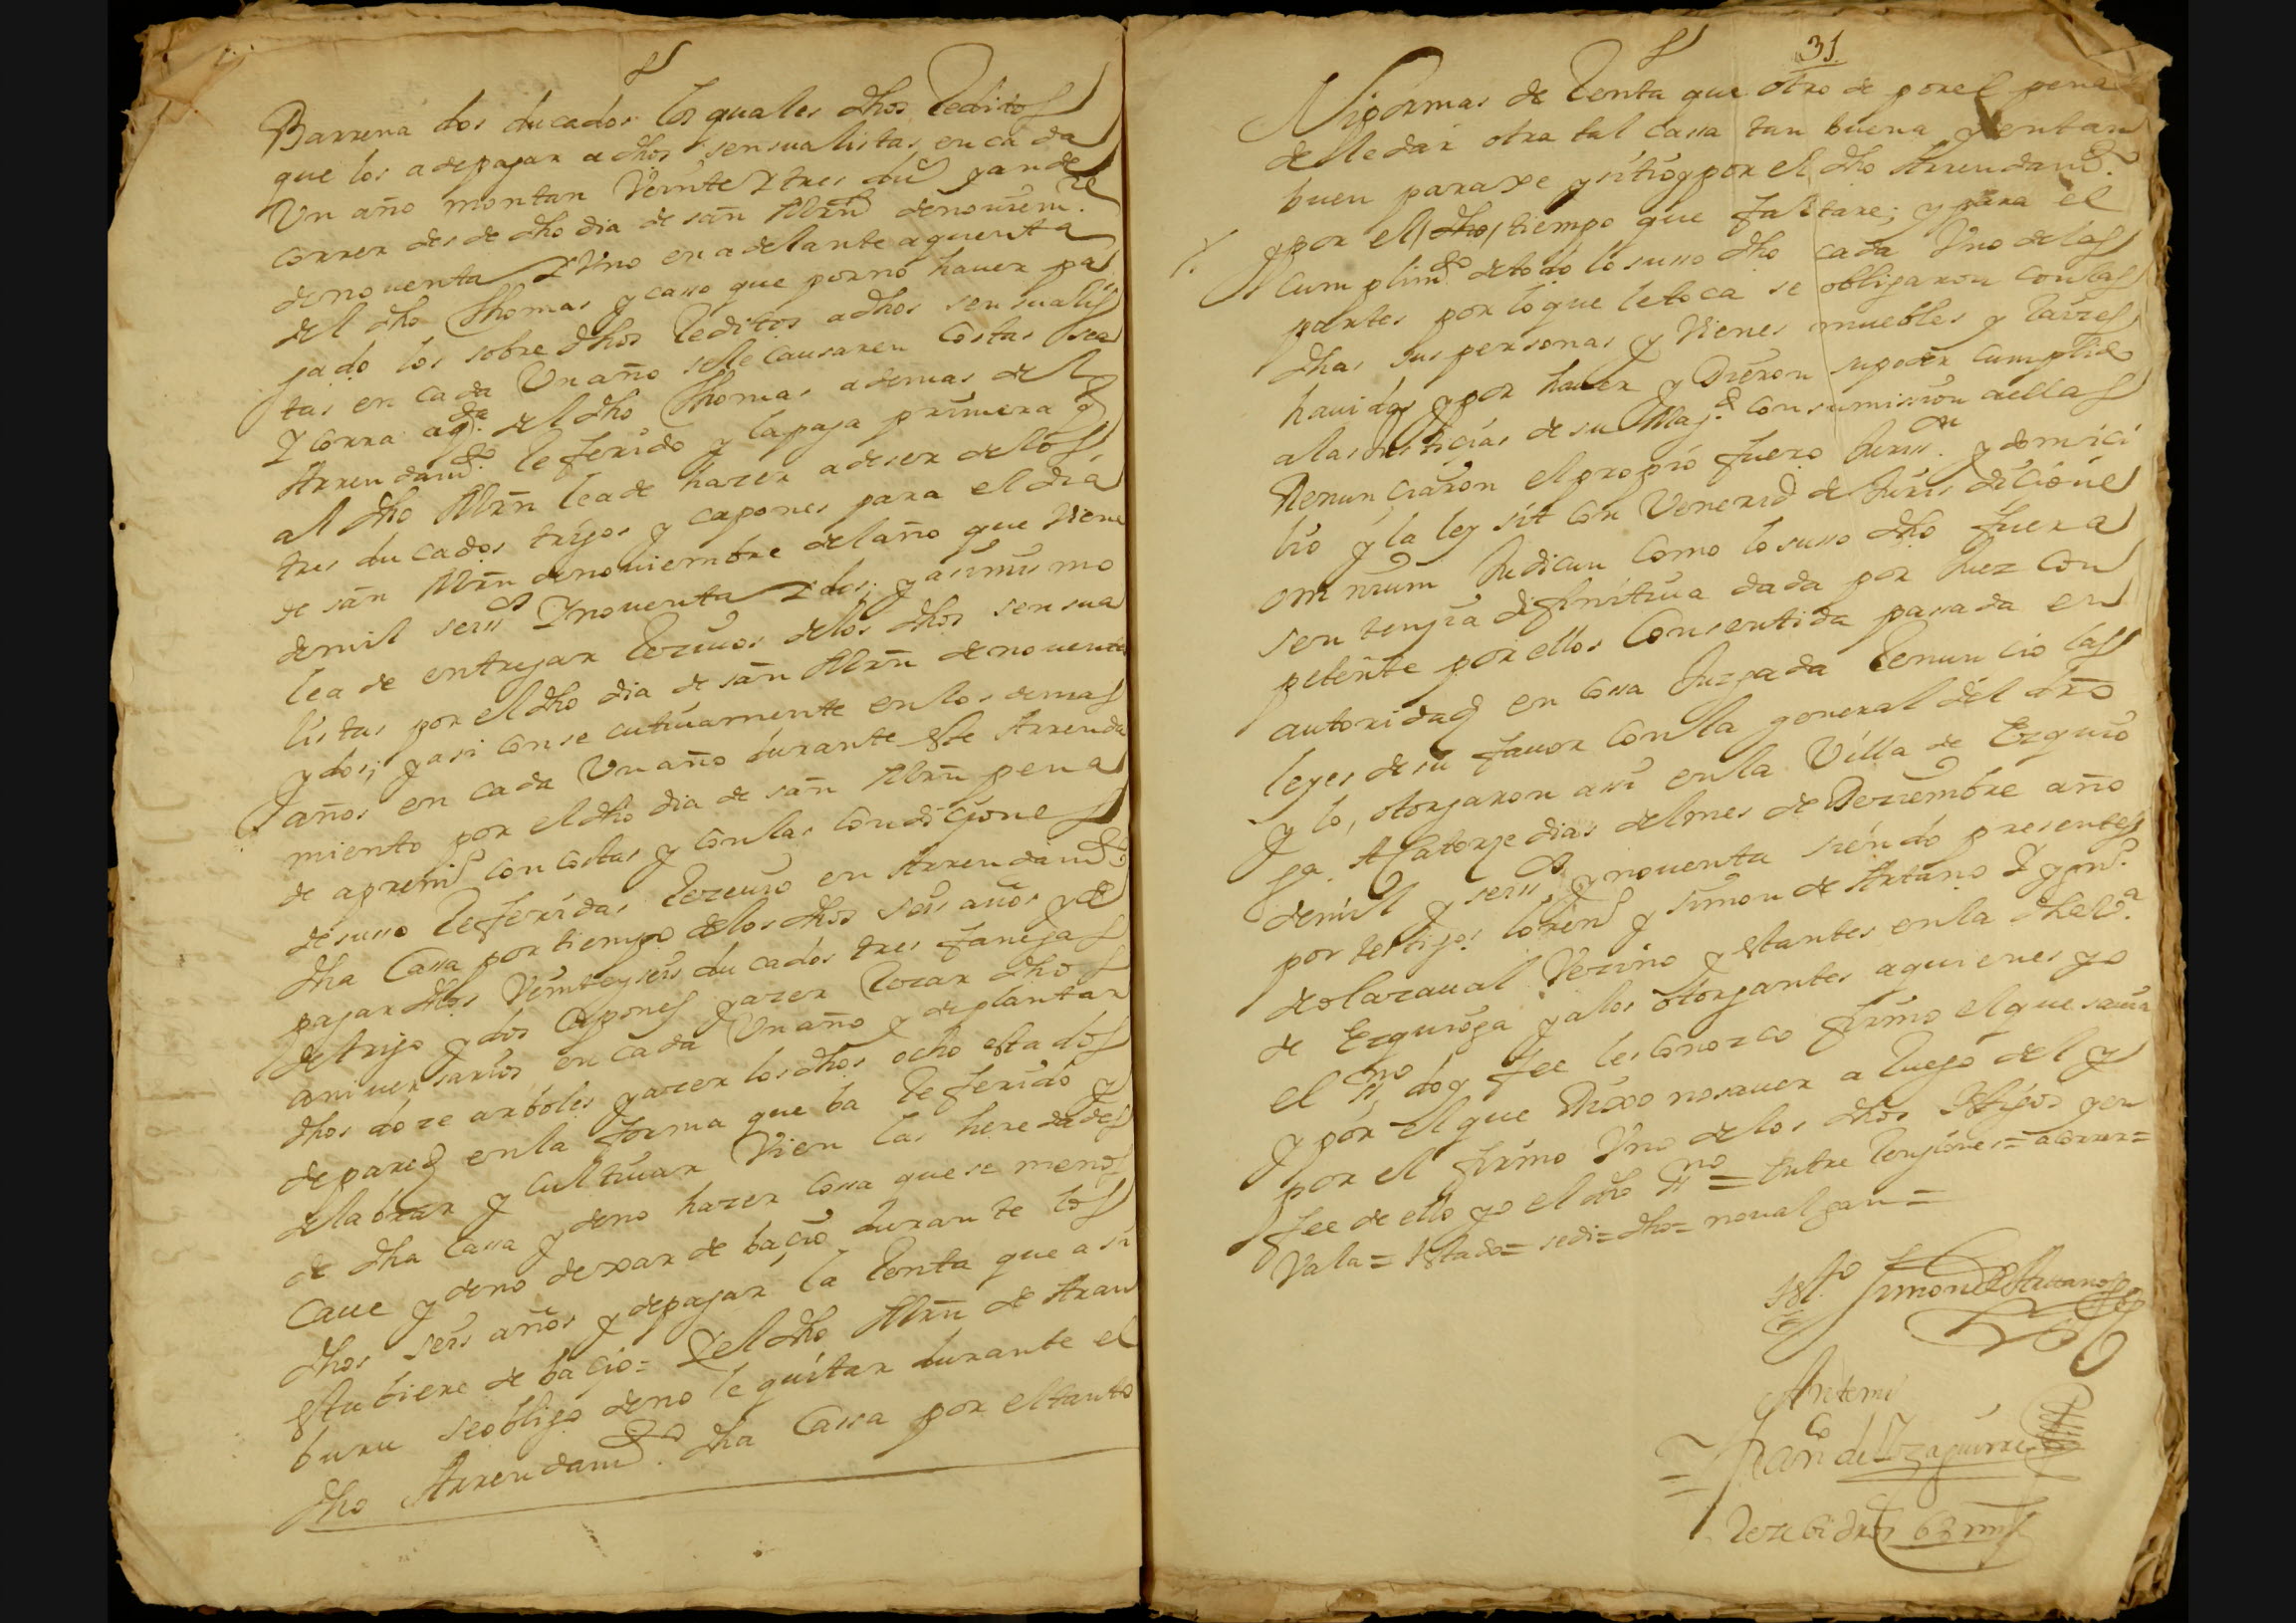 Barrena dos ducados los quales dhos Reditos
que los a de pagar a dhos sensualistas en cada
Un año montan Veinte y tres duˢ y an de
correr desde dho dia de sañ Mrñ de nouiemᵉ
de nouenta y Uno en adelante a quenta
del dho Thomas y casso que por no hauer pa
gado los sobre dhos Reditos a dhos sensualis
tas en cada Un año se le causaren Costas sea
Y corra a qᵗᵃ del dho Thomas ademas del
Arrendamᵗᵒ Referido y la paga primera q
al dho Mrñ lea de hazer a de ser de los
tres ducados trigos y capones para el dia
de sañ Mrñ de nouiembre del año que viene
de mil seisˢ y nouenta y dos; y asimismo
lea de entregar Reziuos de los dhos sensua
listas por el dho dia de sañ Mrñ de nouenta
y dos; y asi consecutiuamente en los demas
años en cada Un año durante este Arrenda
miento por el dho dia de sañ Mrñ pena
de apremᵒ con costas y con las condiçiones
de suso Referidas Reziuio en Arrendamᵗᵒ
dha Cassa por tiempo de los dhos seis años y de
pagar dhos Veinte y seis ducados tres fanegas
de trigo y dos Capones y azer Rezar dhos
aniuersarios en cada Un año y de plantar
dhos doze arboles y azer los dhos ocho estados
de pared en la forma que ba Referido y
de labrar y cultiuar Vien las heredades
de dha Cassa y de no hazer cossa que se menos
caue y de no dexar de baçio durante los
dhos seis años y de pagar la Renta que asi
estubiere de baçio= Y el dho Mrñ de Aran
buru se obligo de no le quitar durante el
dho Arrendamᵗᵒ dha Cassa por el tanto
31
Ni por mas de Renta que otro de por el pena
de lle dar otra tal cassa tan buena y en tan
buen paraxe y sitio y por el dho Arrendamᵗᵒ
y por el /dho/ tiempo que faltare; y para el
cumplimᵗᵒ de todo lo suso dho cada Uno de las
partes por lo que le toca se obligaron con las
dhas sus personas y Vienes muebles y Raizes
hauidos y por hauer y Dieron su poder cumplido
a las Justiçias de su Magᵈ con sumission a ellas
Renunciaron el propio fuero Jurisᵒⁿ y domici
lio y la ley sit con Venerid de Jurisdiçione
omnium Judicun como lo suso dho fuera
sentençia difinitiua dada por Juez Con
petente por ellos Consentida passada en
autoridad en cossa Juzgada Renuncio las
leyes de su fauor con la general del dro
y lo, otorgaron assi en la Villa de Ezquio
ga A Catorze dias del mes de Deziembre año
de mil y seisˢ y nouenta siendo presentes
por testigos Lorenˢ y Simon de Artano
de olazaual Vezino y estantes en la dha Vᵃ
de Ezquioga y a los otorgantes a quienes yo
el ssⁿᵒ doy fee les conozco firmo el que sauia
y por el que Dixo no sauer a Ruego del y
por el firmo Uno de los dhos testigos y en
fee de ello yo el dho ssⁿᵒ = Entre Renglones= a correr=
Vala= testado= sedi= dho= no valgan=
Tᵒ Simon de Artano
Ante mi
Franᶜᵒ de Uzaguirre
Rezebi drˢ 63 mrs